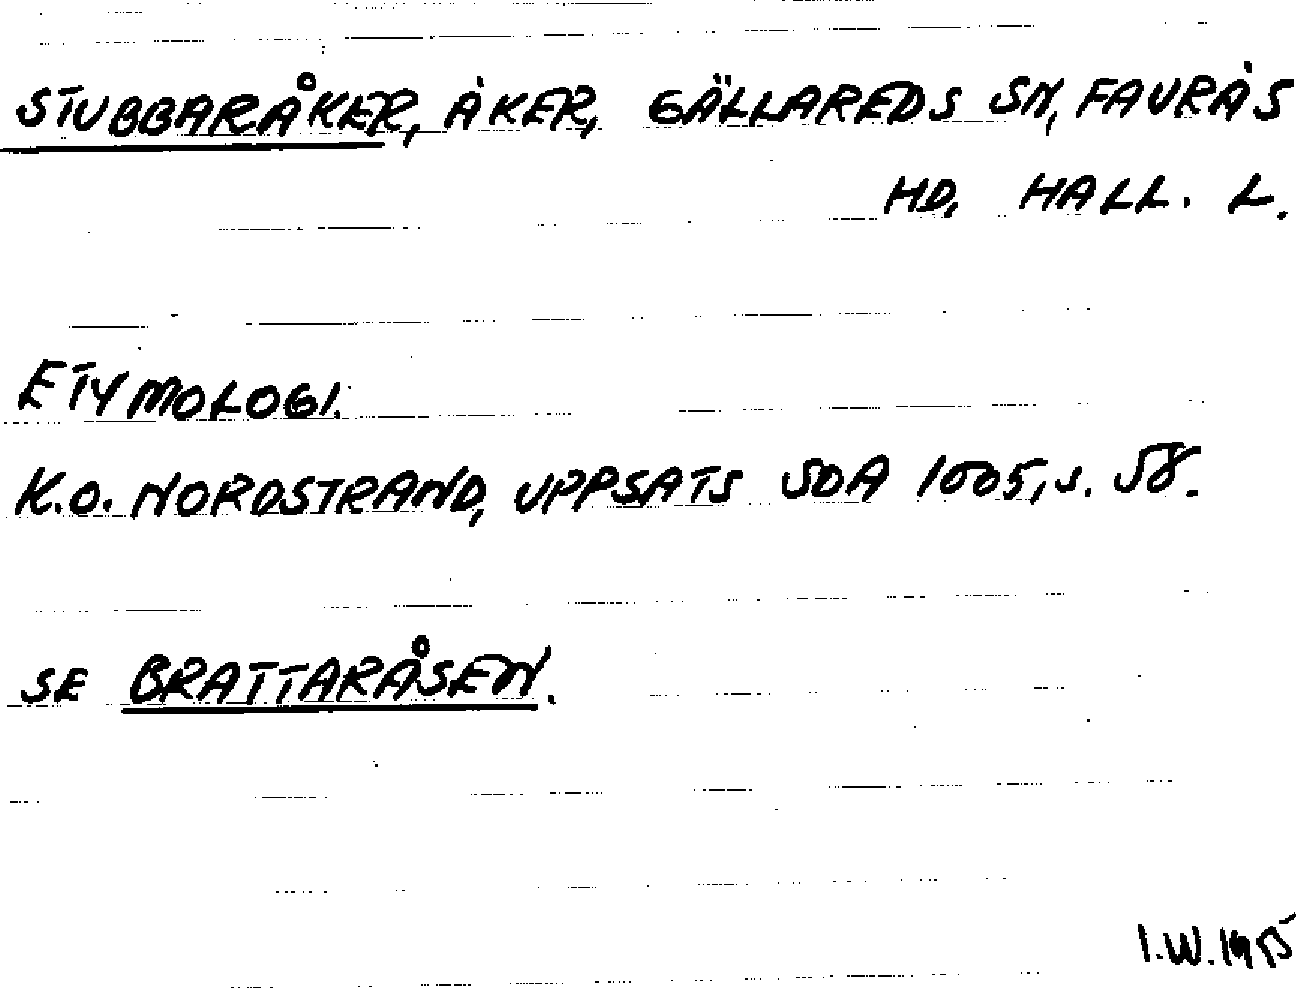 STUBBARÅKER, ÅKER, GÄLLAREDS SN, FAURÅS
HD, HALL. L.
ETYMOLOGI.
K.O. NORDSTRAND, UPPSATS SOA 1005, s. 58.
SE BRATTARÅSEN.
I.W. 1955